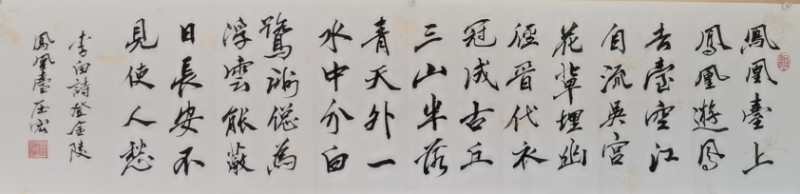 鳳凰臺上
鳳凰遊鳳
去臺空江
自流吳宮
花草埋幽
徑晉代衣
冠成古丘
三山半落
青天外一
水中分白
鷺洲總為
浮雲能蔽
日長安不
見使人愁
李白詩登金陵
鳳凰臺